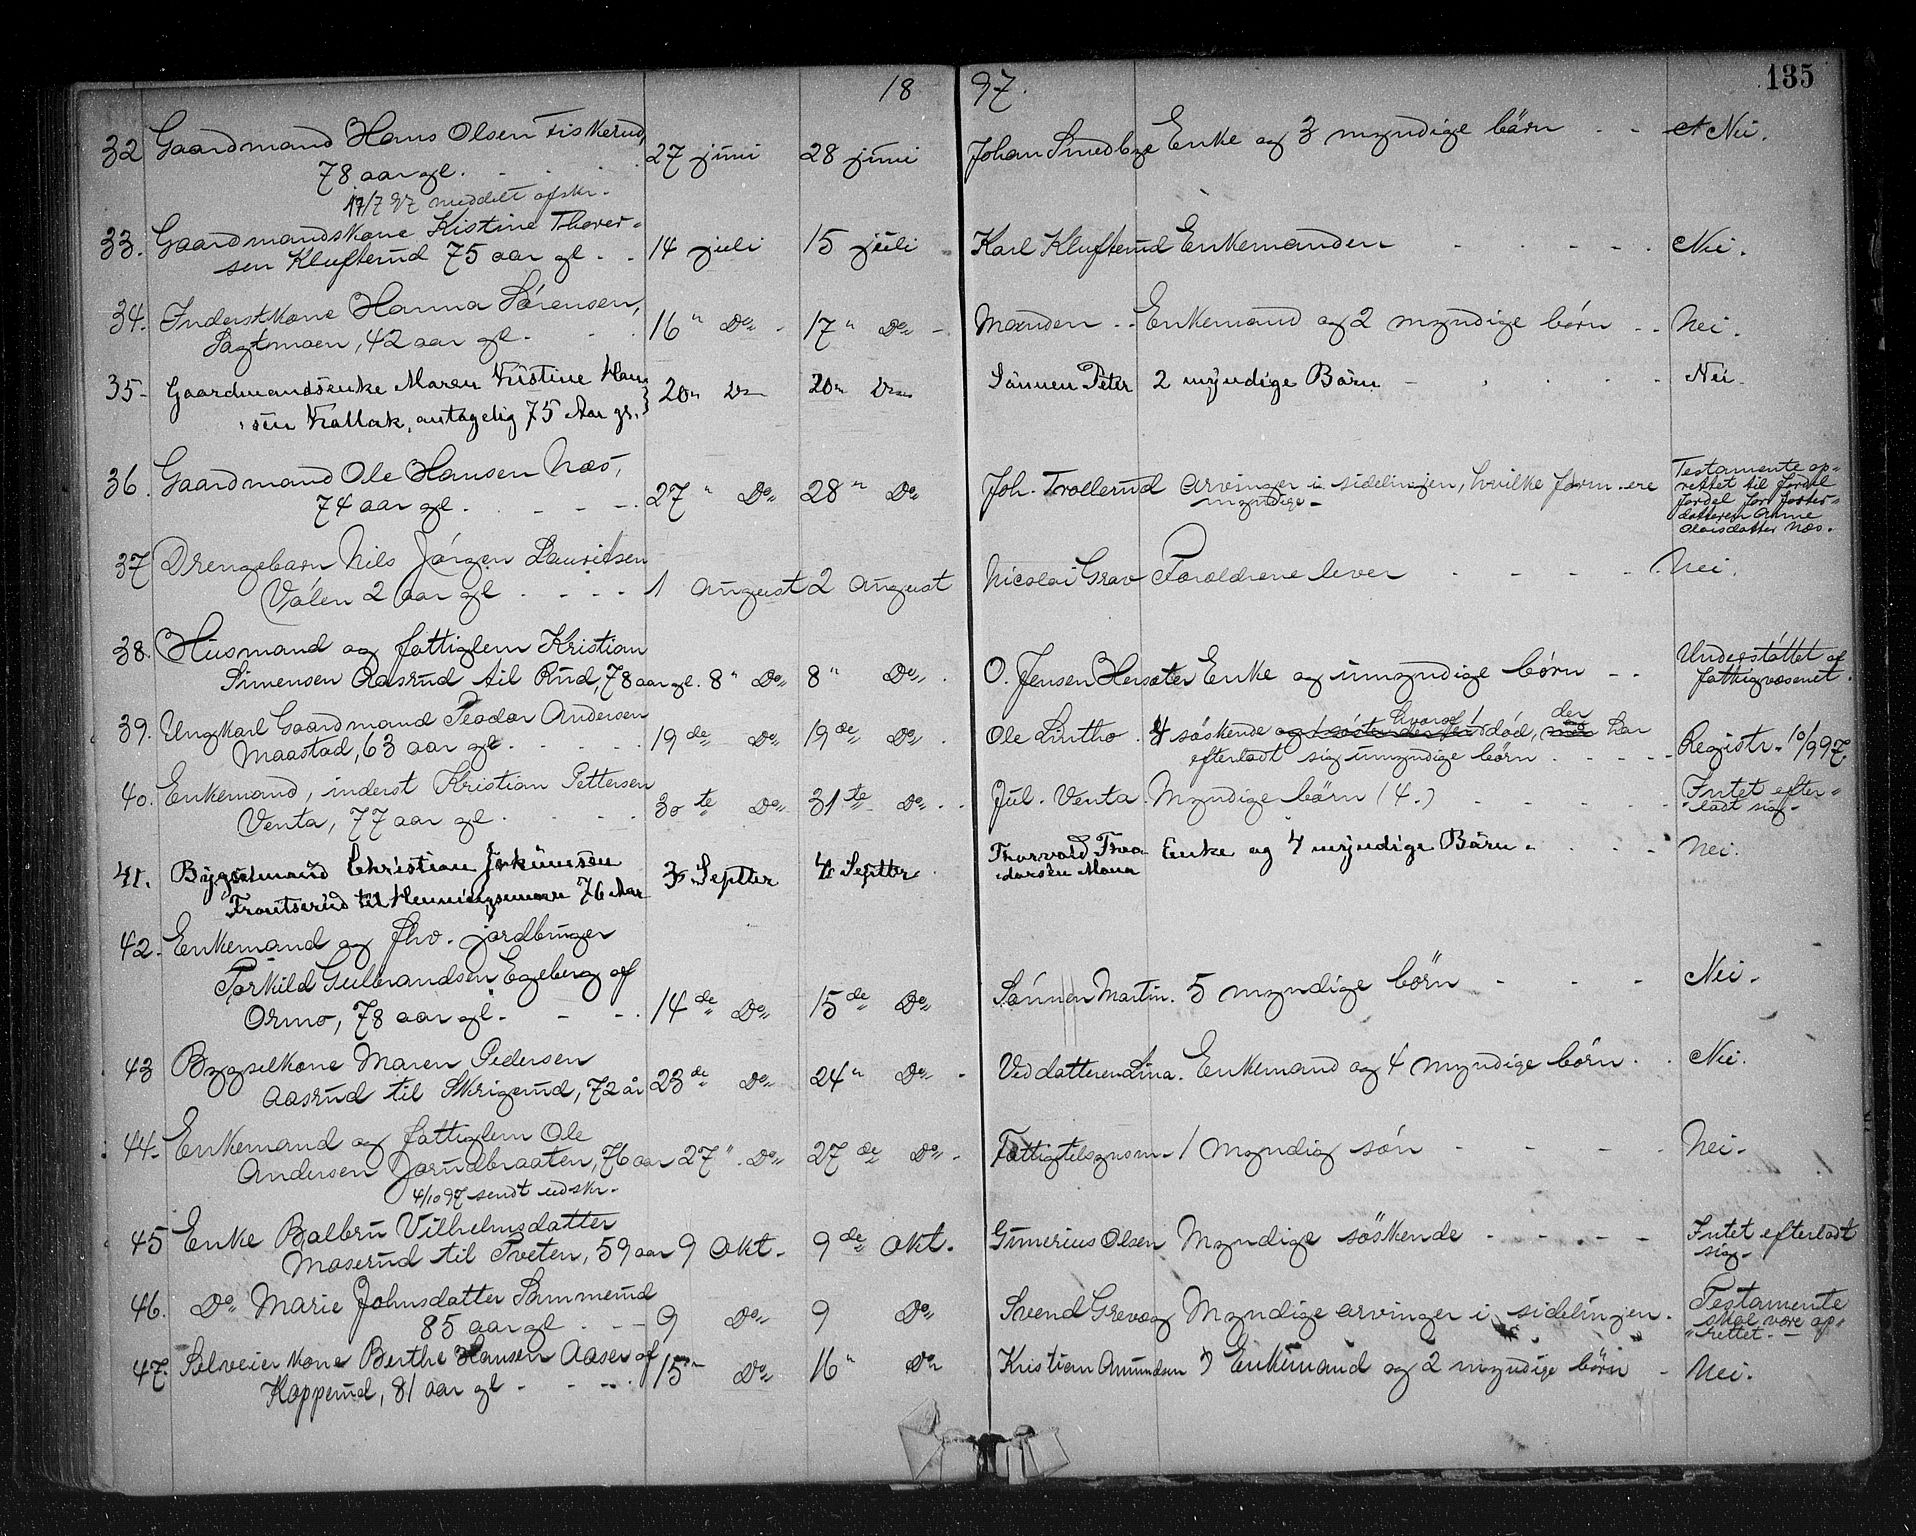 1897.
135
32 Gaardmand Hans Olsen Fiskerud, 27 juni 28 juni Johan Smedbye Enke og 3 myndige börn - - Nei.
78 aar gl.
17/7 97 meddelt afskr.
33. Gaardmandskone Kistine Thover- 14 juli 15 juli Karl Klufterud Enkemanden - - - - Nei.
sen Klufterud 75 aar gl - -
34. Inderstkone Hanna Sörensen, 16 " Do - 17 " Do - Manden - - Enkemand og 2 myndige börn - - Nei.
Sagtmoen, 42 aar gl. - -
35- Gaardmandsenke Maren Kristine Han 20 Do 20 Do Sönnen Peter 2 myndige Börn - - - - Nei.
sen Kallak, antagelig 75 Aar gl.
36. Gaardmand Ole Hansen Næs, 27 " Do 28 " Do Joh. Trollerud Arvinger i sidelinjen, hvilke form. ere
74 aar gl. - - - - myndige -
Testamente op-
rettet til fordel
fordel for foster-
datteren Anne
Olaisdatter Næs.
37 Drengebarn Nils Jörgen Lauritsen 1 august 2 august Nicolai Grav Forældrene lever - - - - Nei.
Válen 2 aar gl - - - -
38. Husmand og fattiglem Kristian
Simensen Aasrud til Rud, 78 aar gl. 8 " Do 8 " Do. O. Jensen Hersæter Enke og umyndige börn - - Understöttet af
fattigvæsenet.
39. Ungkarl Gaardmand Peder Andersen 19de Do 19de Do. Ole Lintho. 4 söskende hvoraf 1 död, der har
Maastad, 63 aar gl. - - - - efterladt sig umyndige börn - - - - Registr. 10/9 97.
40. Enkemand, inderst Kristian Pettersen 30te Do 31te Do - - Jul. Venta. Myndige börn (4.) - - - - Intet efter-
Venta, 77 aar gl - - - - ladt sig.
41. Bygselmand Christian Jokumsen 3 Septter 4 Septter Thorvald Theo Enke og 4 myndige Börn - - - - Nei.
Frautserud til Henningsmoen 76 Aar dorsen Moua
42. Enkemand og fhv. jordbruger
Torkild Gulbrandsen Egeberg af
Ormo, 78 aar gl. - - - 14de Do 15de Do Sönnen Martin. 5 myndige börn - - - Nei.
43 Bygselkone Maren Pedersen
Aasrud til Skrigerud, 72 år 23de Do 24 " Do - Ved datteren Lina. Enkemand og 4 myndige börn - - Nei.
44. Enkemand og fattiglem Ole
Andersen Jorudbraaten, 76 aar 27 " Do 27de Do - Fattigtilsynsm. 1 myndig sön - - - - Nei.
4/10 97 sendt udskr.
45 Enke Balbru Vilhelmsdatter
Moserud til Tveten, 59 aar 9 Okt. 9de Okt. Gunerius Olsen Myndige söskende - - - - Intet efterladt
sig.
46. Do Marie Johnsdatter Sammerud
85 aar gl. - - 9 Do 9 Do Svend Grevaag Myndige arvinger i sidelinjen. Testamente
skal være op-
rettet. -
47. Selveierkone Berthe Hansen Aaser af 15 " Do 16 " Do Kristian Amundsen Enkemand og 2 myndige börn - Nei.
Kopperud, 81 aar gl - - -